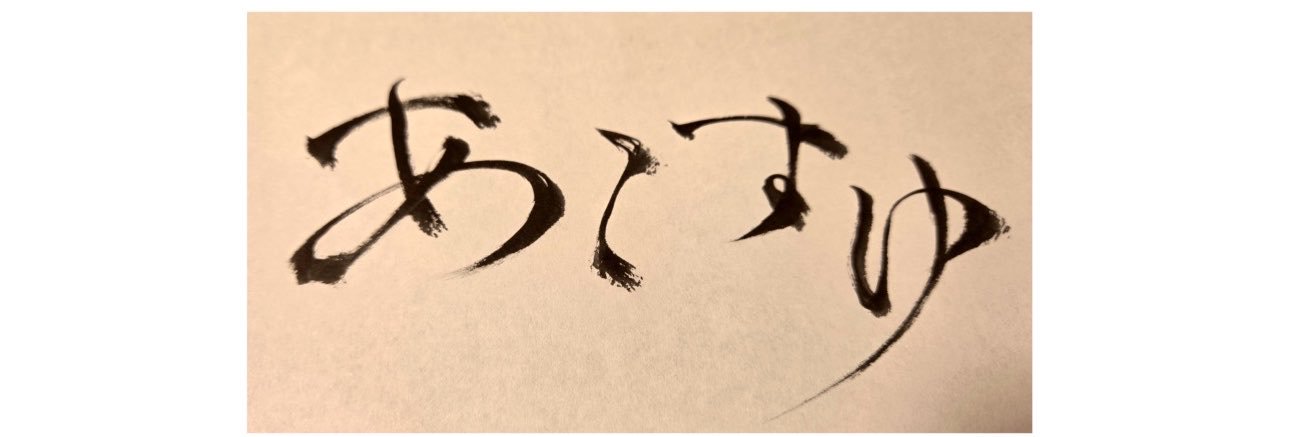 あくすゆ